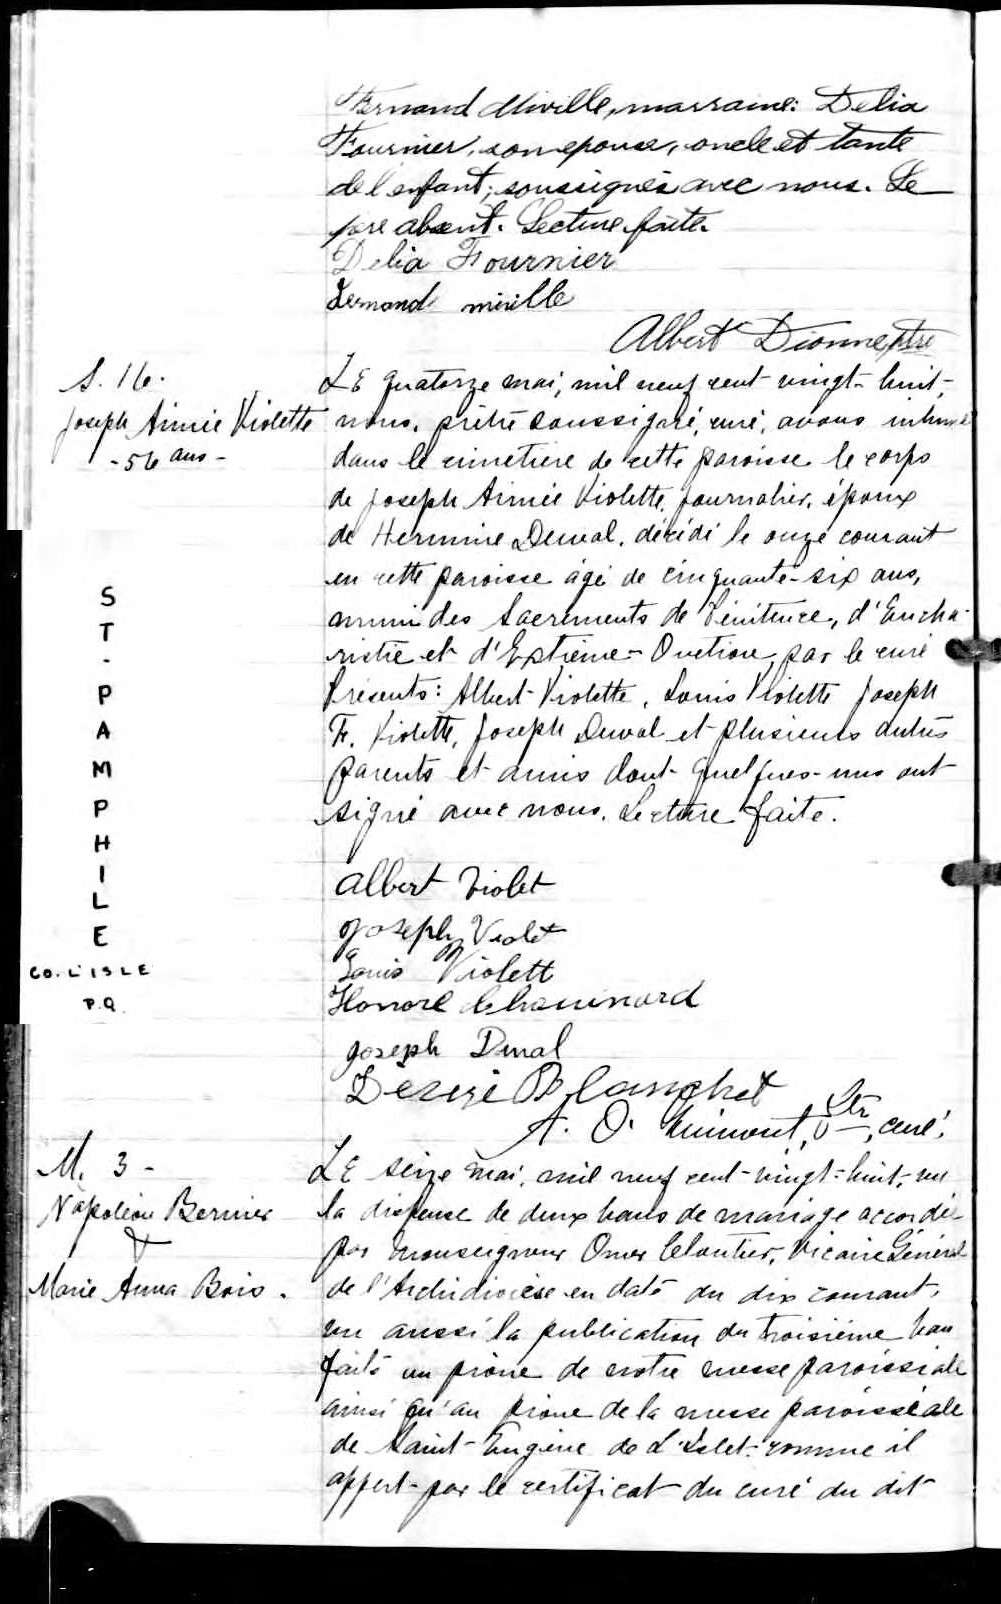 Fernand Miville, marraine: Delia
Fournier, son epouse, oncle et tante
de l'enfant, soussignés avec nous. Le
père absent. Lecture faite.
Delia Fournier
Fernand miville
Albert Dionne, ptre
S. 16.
Joseph Aimée Violette
- 56 ans -
LE quatorze mai, mil neuf cent vingt-huit,
nous, prêtre soussigné, curé, avons inhumé
dans le cimetière de cette paroisse le corps
de Joseph Aimée Violette, journalier, époux
de Hermine Duval, décédé le onze courant
en cette paroisse âgé de cinquante-six ans,
muni des Sacrements de Pénitence, d'Eucha-
ristie et d'Extrême-Onction, par le curé
Présents: Albert Violette, Louis Violette Joseph
F. Violette, Joseph Duval et plusieurs autres
parents et amis dont quelques-uns ont
signé avec nous. Lecture faite.
Albert Violet
Joseph Violet
Louis Violett
Honoré Chouinard
Joseph Duval
Désiré Blanchet
A. O. Guimont, Ptr, curé.
ST-PAMPHILE
CO. L'ISLE
P.Q.
M. 3 -
Napoléon Bernier
&
Marie Anna Bois.
LE seize mai, mil neuf cent-vingt-huit, vu
la dispense de deux bans de mariage accordée
par Monseigneur Omer Cloutier, Vicaire Général
de l'Archidiocèse en date du dix courant,
vu aussi la publication du troisième ban
faite au prône de notre messe paroissiale
ainsi qu'au prône de la messe paroissiale
de Saint-Eugène de L'Islet comme il
appert par le certificat du curé du dit